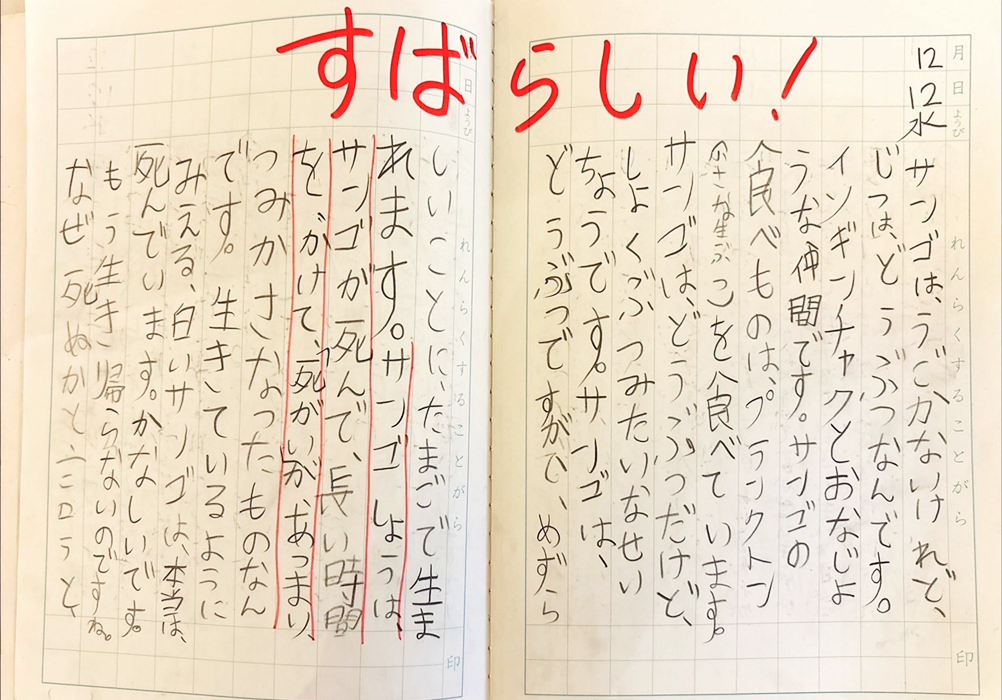 すばらしい!
月 日 ようび
12 12 水
れんらくすることがら
サンゴは、うごかないけれど、
じつは、どうぶつなんです。
イソギンチャクとおなじよ
うな仲間です。サンゴの
食べものは、プランクトン
(小さな生ぶつ)を食べています。
サンゴは、どうぶつだけど、
しょくぶつみたいなせい
ちょうです。サンゴは、
どうぶつですが、めずら
印
日
れんらくすることがら
しいことに、たまごで生ま
れます。サンゴしょうは、
サンゴが死んで、長い時間
をかけて、死がいが、あつまり、
つみかさなったものなん
です。生きているように
みえる、白いサンゴは、本当は、
死んでいます。かなしいです。
もう生き帰らないのですね。
なぜ死ぬかと、ニロうと、
印